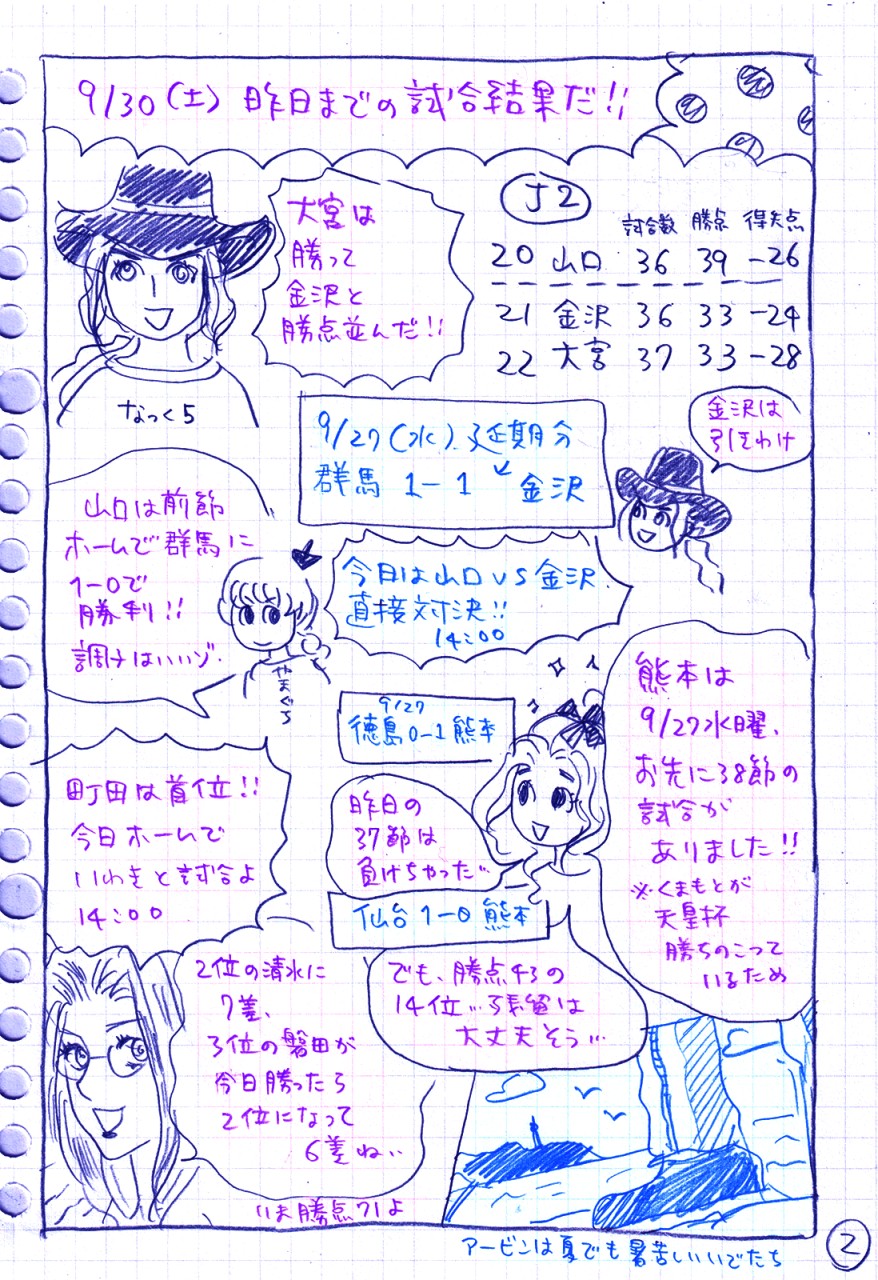 9/30(土) 昨日までの試合結果だ!!
大宮は
勝って
金沢と
勝点並んだ!!
J2
試合数 勝点 得失点
20 山口 36 39 -26
21 金沢 36 33 -24
22 大宮 37 33 -28
なっく5
9/27(水) 延期分
群馬 1-1 金沢
金沢は
引きわけ
山口は前節
ホームで群馬に
1-0で
勝利!!
調子はいいゾ.
やまぐち
今日は山口VS金沢
直接対決!!
14:00
9/27
徳島0-1熊本
熊本は
9/27水曜、
お先に38節の
試合が
ありました!!
※くまもとが
天皇杯
勝ちのこって
いるため
昨日の
37節は
負けちゃった…
仙台1-0熊本
でも、勝点43の
14位…残留は
大丈夫そう…
町田は首位!!
今日ホームで
いわきと試合よ
14:00
2位の清水に
7差、
3位の磐田が
今日勝ったら
2位になって
6差ね…
いま勝点71よ
アービンは夏でも暑苦しいいでたち
2